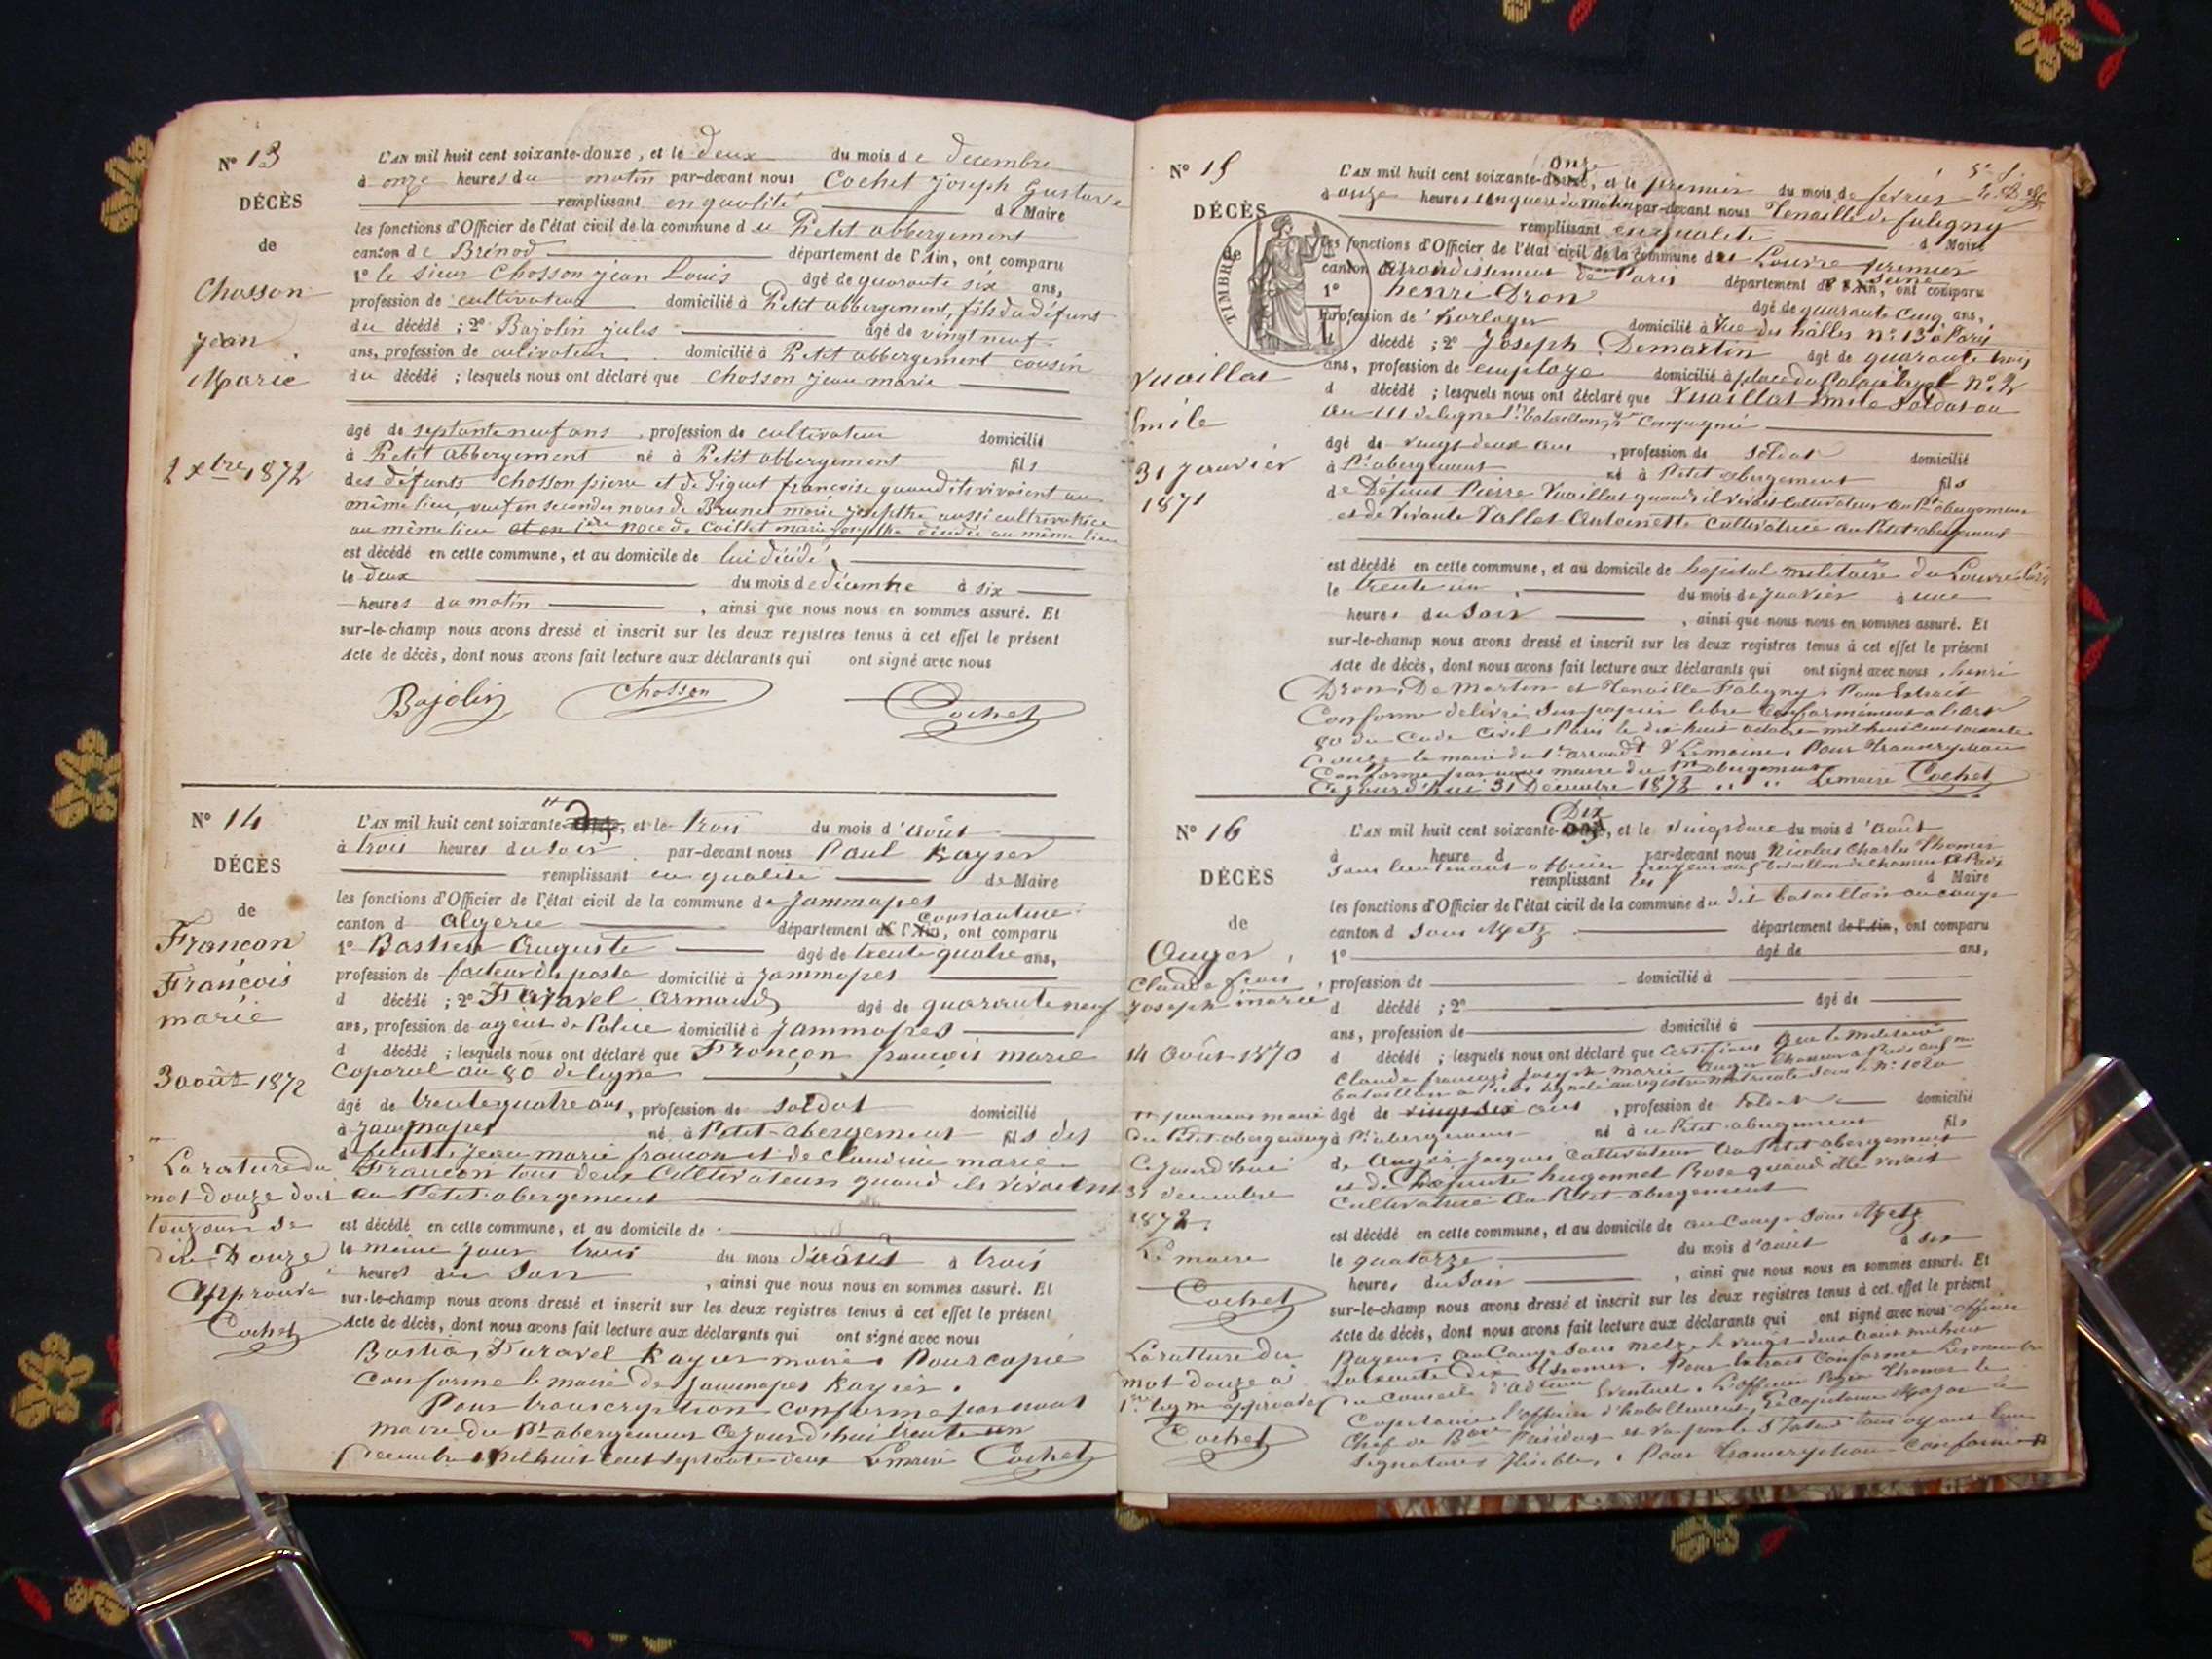 N° 13
DÉCÈS
de
Chosson
Jean
Marie
2 xbre 1872
L'AN mil huit cent soixante-douze, et le deux du mois de décembre
à onze heures du matin par-devant nous Cochet Joseph Gustave
remplissant en qualité de Maire
les fonctions d'Officier de l'état civil de la commune du Petit abbergement
canton de Brénod département de l'Ain, ont comparu
1° le sieur Chosson jean Louis âgé de quarante six ans,
profession de cultivateur domicilié à Petit abbergement, fils du défunt
du décédé ; 2° Bajolin jules âgé de vingt neuf
ans, profession de cultivateur domicilié à Petit abbergement cousin
du décédé ; lesquels nous ont déclaré que Chosson jean marie
âgé de septante neuf ans, profession de cultivateur domicilié
à Petit abbergement né à Petit abbergement fils
des défunts Chosson pierre et de Siguet francoise quand ils vivoient au
même lieu, veuf en secondes noces de Brunet marie josepthe aussi cultivatrice
au même lieu et en 1ère noce de Caillet marie josepthe décédée au même lieu
est décédé en cette commune, et au domicile de lui décédé
le deux du mois de décembre à six
heures du matin, ainsi que nous nous en sommes assuré. Et
sur-le-champ nous avons dressé et inscrit sur les deux registres tenus à cet effet le présent
acte de décès, dont nous avons fait lecture aux déclarants qui ont signé avec nous
Bajolin Chosson Cochet
N° 14
DÉCÈS
de
Francon
François
marie
3 août 1872
La rature du
mot douze doit
toujours se
dire Douze
Approuvé
Cochet
L'AN mil huit cent soixante-, et le trois du mois d'août
à trois heures du soir par-devant nous Paul Kayser
remplissant en qualité de Maire
les fonctions d'Officier de l'état civil de la commune de Jammapes
canton d Algerie département de l'Ain, ont comparu
Constantine
1° Bastien Auguste âgé de trente quatre ans,
profession de facteur du poste domicilié à Jammapes
d décédé ; 2° Faravel Armand âgé de quarante neuf
ans, profession de agent de Police domicilié à Jammapes
d décédé ; lesquels nous ont déclaré que Françon françois marie
Caporal au 80 de ligne
âgé de trente quatre ans, profession de soldat domicilié
à Jammapes né à Petit-abergement fils des
défunts Jean marie françon et de Claudine marie
Francon tous deux Cultivateurs quand ils vivoient
au Petit-abergement
est décédé en cette commune, et au domicile de
le même jour trois du mois d'août à trois
heures du soir, ainsi que nous nous en sommes assuré. Et
sur-le-champ nous avons dressé et inscrit sur les deux registres tenus à cet effet le présent
acte de décès, dont nous avons fait lecture aux déclarants qui ont signé avec nous
Bastien, Faravel Kayser maire. Pour copie
conforme le maire de Jammapes Kayser.
Pour transcription conforme par nous
maire du Pt abergement Ce jourd'hui trente un
Decembre Mil huit cent septante deux Le maire Cochet
N° 15
DÉCÈS
de
TIMBRE
Vuaillat
Emile
31 Janvier
1871
L'AN mil huit cent soixante-douze, et le premier du mois de février
onze
à onze heures du matin par-devant nous Tenaille de Saligny
remplissant en qualité d Maire
les fonctions d'Officier de l'état civil de la commune du Louvre premier
canton arrondissement de Paris département de l'Ain, ont comparu
Seine
1° henri Dron âgé de quarante cinq ans,
profession de horloger domicilié à Rue des halles n° 13 à Paris
d décédé ; 2° Joseph Demartin âgé de quarante trois
ans, profession de employé domicilié à place du Palais Royal N° 2
d décédé ; lesquels nous ont déclaré que Vuaillat Emile soldat au
au 111 de ligne 1er bataillon, Compagnie
âgé de vingt deux ans, profession de soldat domicilié
à Pt abergement né à Petit abergement fils
de Défunt Pierre Vuaillat quand il vivait Cultivateur au Pt abergement
et de Vivante Vallet Antoinette Cultivatrice au Petit-abergement
est décédé en cette commune, et au domicile de hopital militaire du Louvre
le trente un du mois de Janvier à une
heures du Soir, ainsi que nous nous en sommes assuré. Et
sur-le-champ nous avons dressé et inscrit sur les deux registres tenus à cet effet le présent
acte de décès, dont nous avons fait lecture aux déclarants qui ont signé avec nous henri
Dron, De Martin et Tenaille Saligny. Pour Extrait
Conforme délivré sur papier libre conformément à l'art
80 du Code Civil Paris le dix huit octobre mil huit cent soixante
onze le maire du 1er arrondt Lemoine. Pour transcription
Conforme par nous maire du Pt abergement
Ce jourd'hui 31 Décembre 1872 Le maire Cochet
N° 16
DÉCÈS
de
Auger,
Claude frois
Joseph marie
14 Août 1870
par nous maire
du Petit-abergement
Ce jourd'hui
31 decembre
1872.
Le maire
Cochet
La rature du
mot douze à
1ère ligne approuvée
Cochet
Dix
L'AN mil huit cent soixante-, et le vingt deux du mois d'Août
à heure d par-devant nous Nicolas Charles Thomes
sous lieutenant officier payeur au bataillon de chasseurs à Pied
remplissant les d Maire
les fonctions d'Officier de l'état civil de la commune du dit bataillon au camp
canton d sous Metz département de l'Ain, ont comparu
1° âgé de ans,
profession de domicilié à
d décédé ; 2° âgé de
ans, profession de domicilié à
d décédé ; lesquels nous ont déclaré que Certifions que le militaire
Claude françois Joseph marie Auger Chasseur à Pied au
bataillon à Pied signalé au registre matricule sous le N° 1020
âgé de vingt six ans, profession de Soldat domicilié
à Pt abergement né à u Petit-abergement fils
de Auger Jacques Cultivateur au Petit abergement
et de Défunte hugonnet Rose quand elle vivait
Cultivatrice au Petit-abergement
est décédé en cette commune, et au domicile de au Camp sous Metz
le quatorze du mois d'aout à six
heures du Soir, ainsi que nous nous en sommes assuré. Et
sur-le-champ nous avons dressé et inscrit sur les deux registres tenus à cet effet le présent
acte de décès, dont nous avons fait lecture aux déclarants qui ont signé avec nous officier
Payeur. au Camp sous metz le vingt deux Aout mil huit
soixante Dix Thomes. Pour Extrait Conforme Les membres
du conseil d'adtion Eventuel. L'officier Payeur Thomes le
Capitaine l'officier d'habillement, Le Capitaine Major le
Chef de Bon Président et tous ayant leurs
Signatures Illisibles. Pour transcription conforme